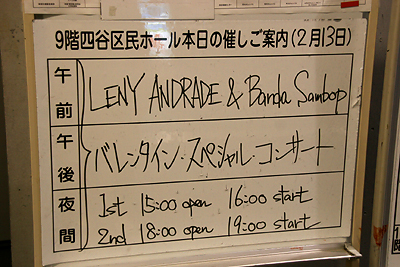 9階四谷区民ホール本日の催しご案内(2月13日)
午前
LENY ANDRADE & Banda Sambop
午後
バレンタイン・スペシャル・コンサート
夜間
1st 15:00 open 16:00 start
2nd 18:00 open 19:00 start